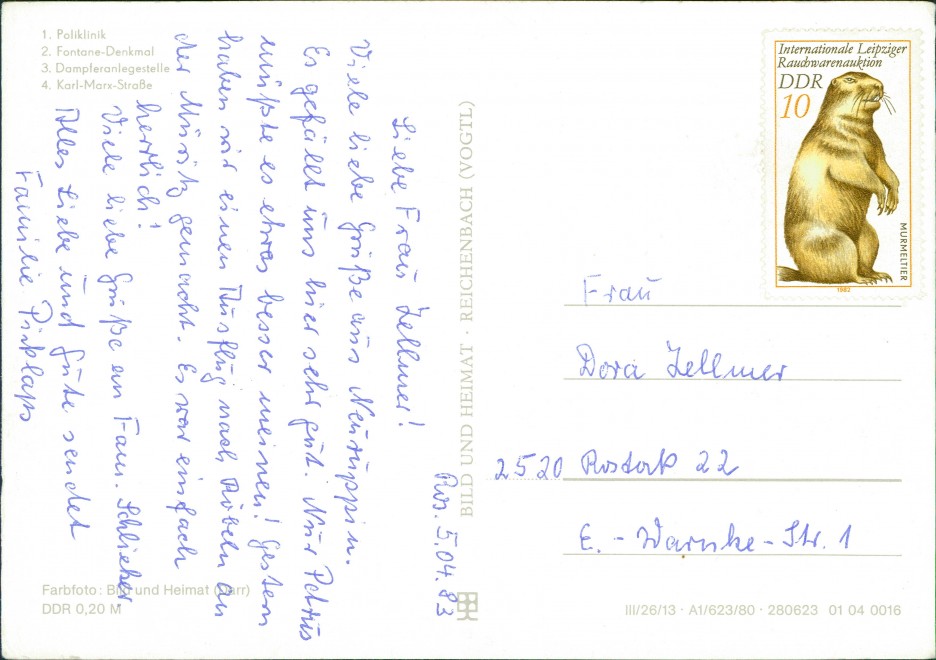 1. Poliklinik
2. Fontane-Denkmal
3. Dampferanlegestelle
4. Karl-Marx-Straße
Ros. 5.04.83
Liebe Frau Zellmer!
Viele liebe Grüße aus Neuruppin.
Es gefällt uns hier sehr gut. Nur Petrus
müßte es etwas besser meinen! Gestern
haben wir einen Ausflug nach Röbeln an
der Müritz gemacht. Es war einfach
herrlich!
Viele liebe Grüße an Fam. Schlieker
Alles Liebe und Gute sendet
Familie
Farbfoto: Bild und Heimat (Darr)
DDR 0,20 M
BILD UND HEIMAT · REICHENBACH (VOGTL)
Internationale Leipziger
Rauchwarenauktion
DDR
10
MURMELTIER
1982
Frau
Dora Zellmer
2520 Rostock 22
E.-Warnke-Str. 1
III/26/13 · A1/623/80 · 280623 01 04 0016